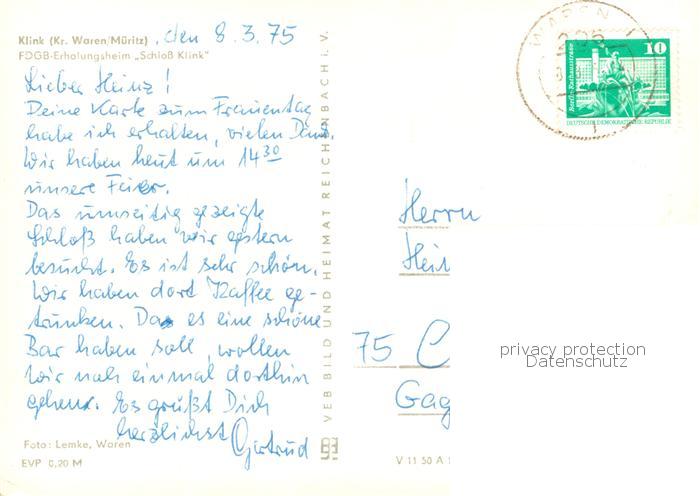 Klink (Kr. Waren/Müritz), den 8.3.75
FDGB-Erholungsheim „Schloß Klink"
Lieber Heinz!
Deine Karte zum Frauentag
habe ich erhalten, vielen Dank.
Wir haben heut um 14³⁰
unsere Feier.
Das umseitig gezeigte
Schloß haben wir gestern
besucht. Es ist sehr schön.
Wir haben dort Kaffee ge-
trunken. Da es eine schöne
Bar haben soll, wollen
wir noch einmal dorthin
gehen. Es grüßt Dich
herzlichst Gertrud
Foto: Lemke, Waren
EVP 0,20 M
VEB BILD UND HEIMAT REICHENBACH i. V.
V 11 50 A 1
WAREN 1
10
Berlin-Rathausstrasse
DEUTSCHE DEMOKRATISCHE REPUBLIK
Herrn
Hei
75 C
Gag
privacy protection
Datenschutz